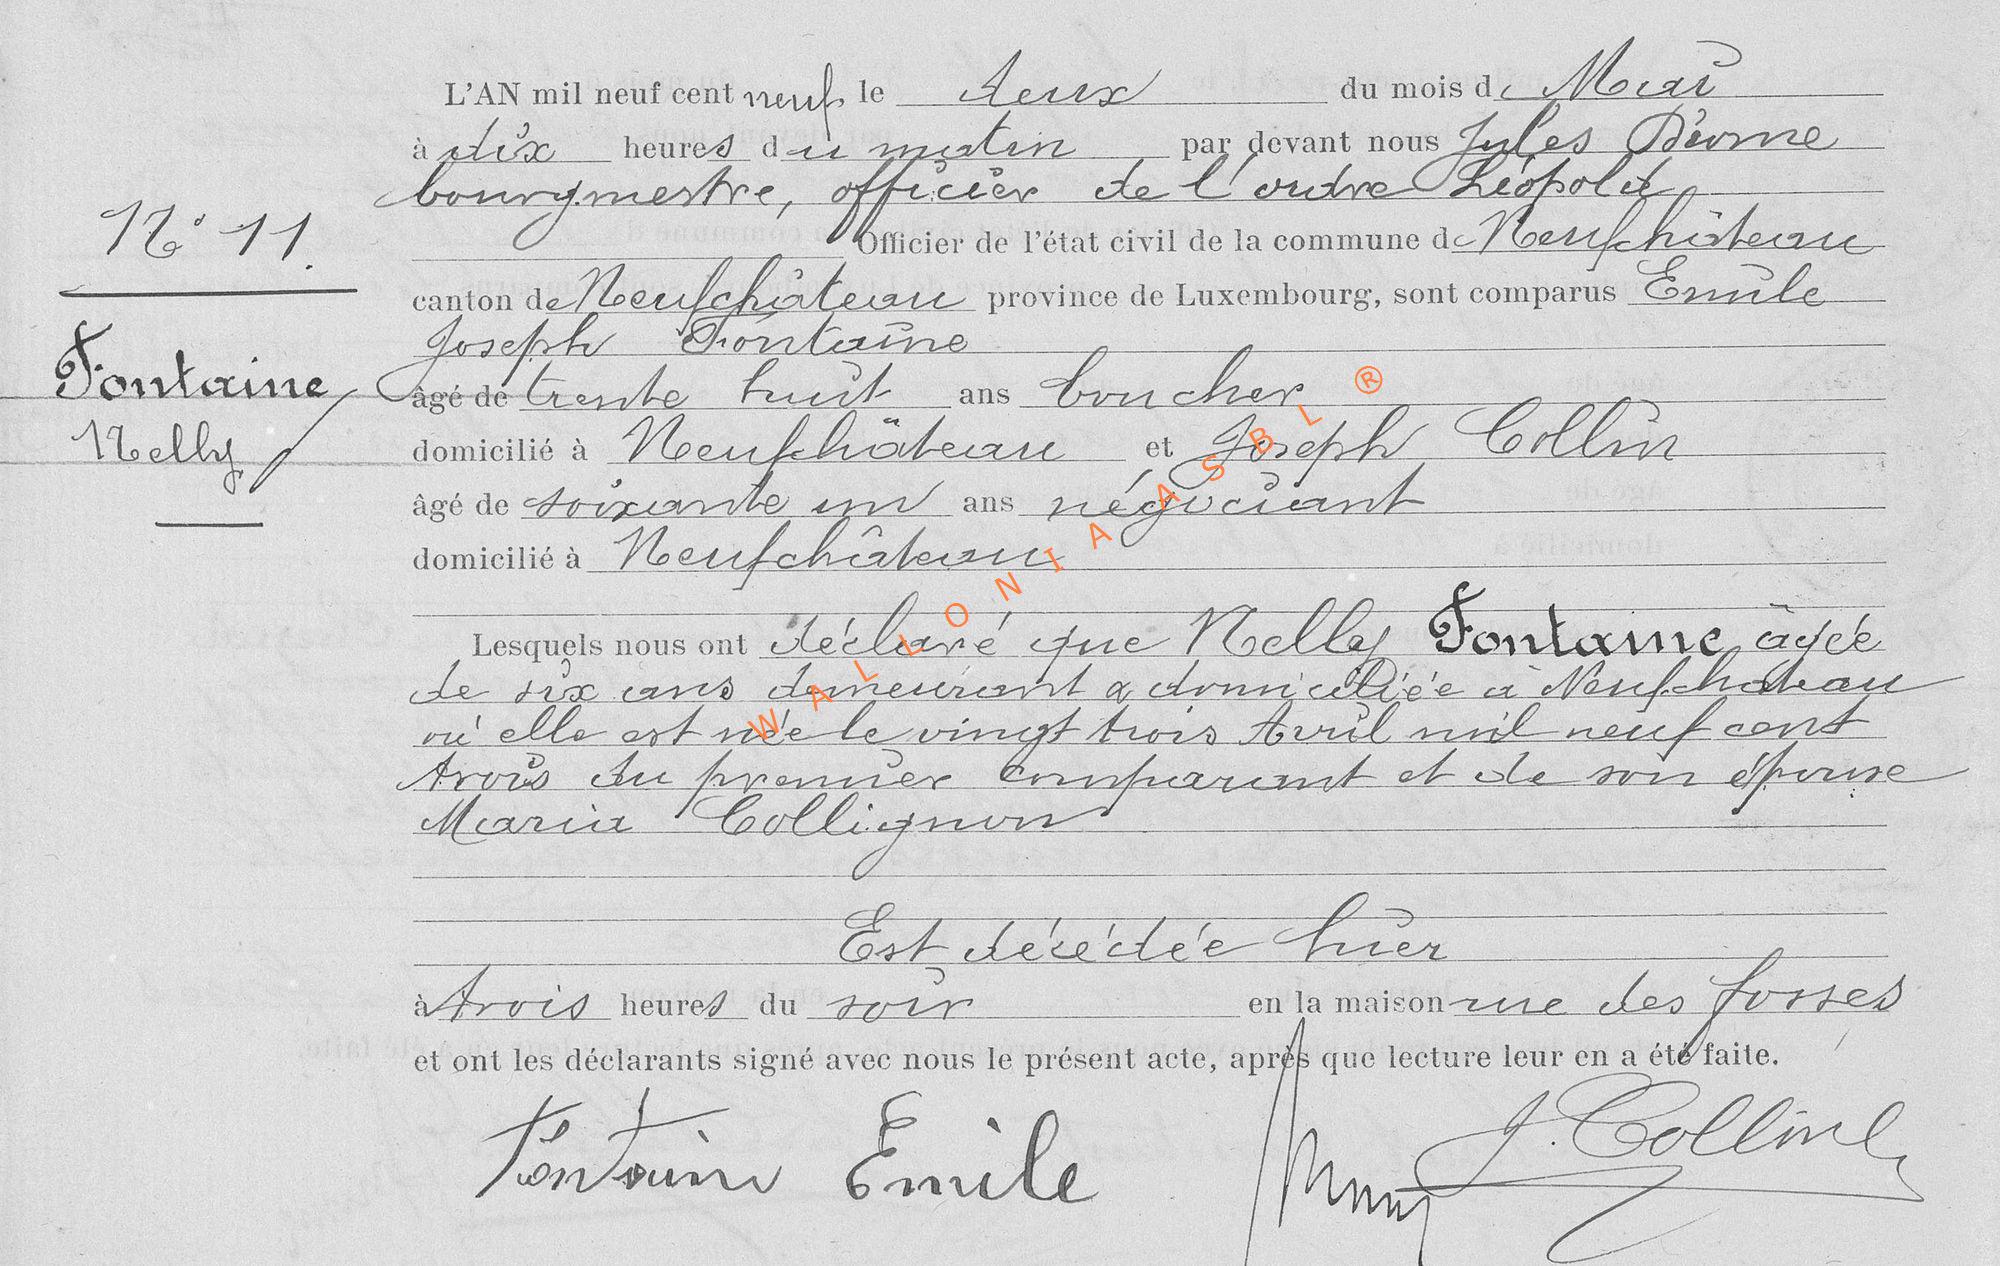 L'AN mil neuf cent neuf le deux du mois de Mai
à dix heures du matin par devant nous Jules
bourgmestre, officier de l'ordre Léopold
N° 11. Officier de l'état civil de la commune de Neufchâteau
canton de Neufchâteau province de Luxembourg, sont comparus Emile
Joseph Fontaine
Fontaine
Nelly
âgé de trente huit ans boucher
domicilié à Neufchâteau et Joseph Collin
âgé de soixante un ans négociant
domicilié à Neufchâteau
Lesquels nous ont déclaré que Nelly Fontaine âgée
de six ans demeurant & domiciliée à Neufchateau
où elle est née le vingt trois Avril mil neuf cent
trois du premier comparant et de son épouse
Maria Collignon
Est décédée hier
à trois heures du soir en la maison rue des fosses
et ont les déclarants signé avec nous le présent acte, après que lecture leur en a été faite.
Fontaine Emile
J. Collin
WALLONIA ASBL ®